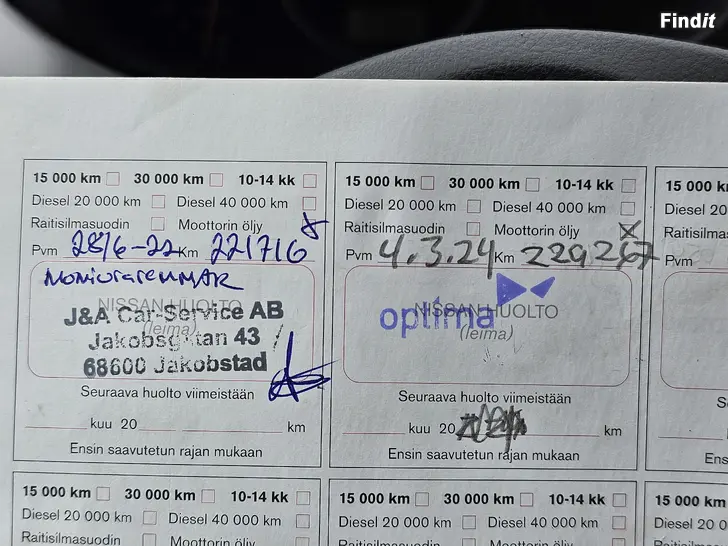 Findit
15 000 km 30 000 km 10-14 kk
Diesel 20 000 km Diesel 40 000 km
Raitisilmasuodin Moottorin öljy x
Pvm 28/6-22 Km 221716
NISSAN HUOLTO
(leima)
J&A Car-Service AB
Jakobsgatan 43
68600 Jakobstad
Seuraava huolto viimeistään
kuu 20 km
Ensin saavutetun rajan mukaan
15 000 km 30 000 km 10-14 kk
Diesel 20 000 km Diesel 40 000 km
Raitisilmasuodin Moottorin öljy x
Pvm 4.3.24 Km 229267
NISSAN HUOLTO
optima
(leima)
Seuraava huolto viimeistään
kuu 20 km
Ensin saavutetun rajan mukaan
15 000 k
Diesel 20
Raitisilma
Pvm
S
Ens
15 000 km 30 000 km 10-14 kk
Diesel 20 000 km Diesel 40 000 km
Raitisilmasuodin Moottorin öljy
15 000 km 30 000 km 10-14 kk
Diesel 20 000 km Diesel 40 000 km
Raitisilmasuodin Moottorin öljy
15 000 km
Diesel 20 0
Raitisilmas